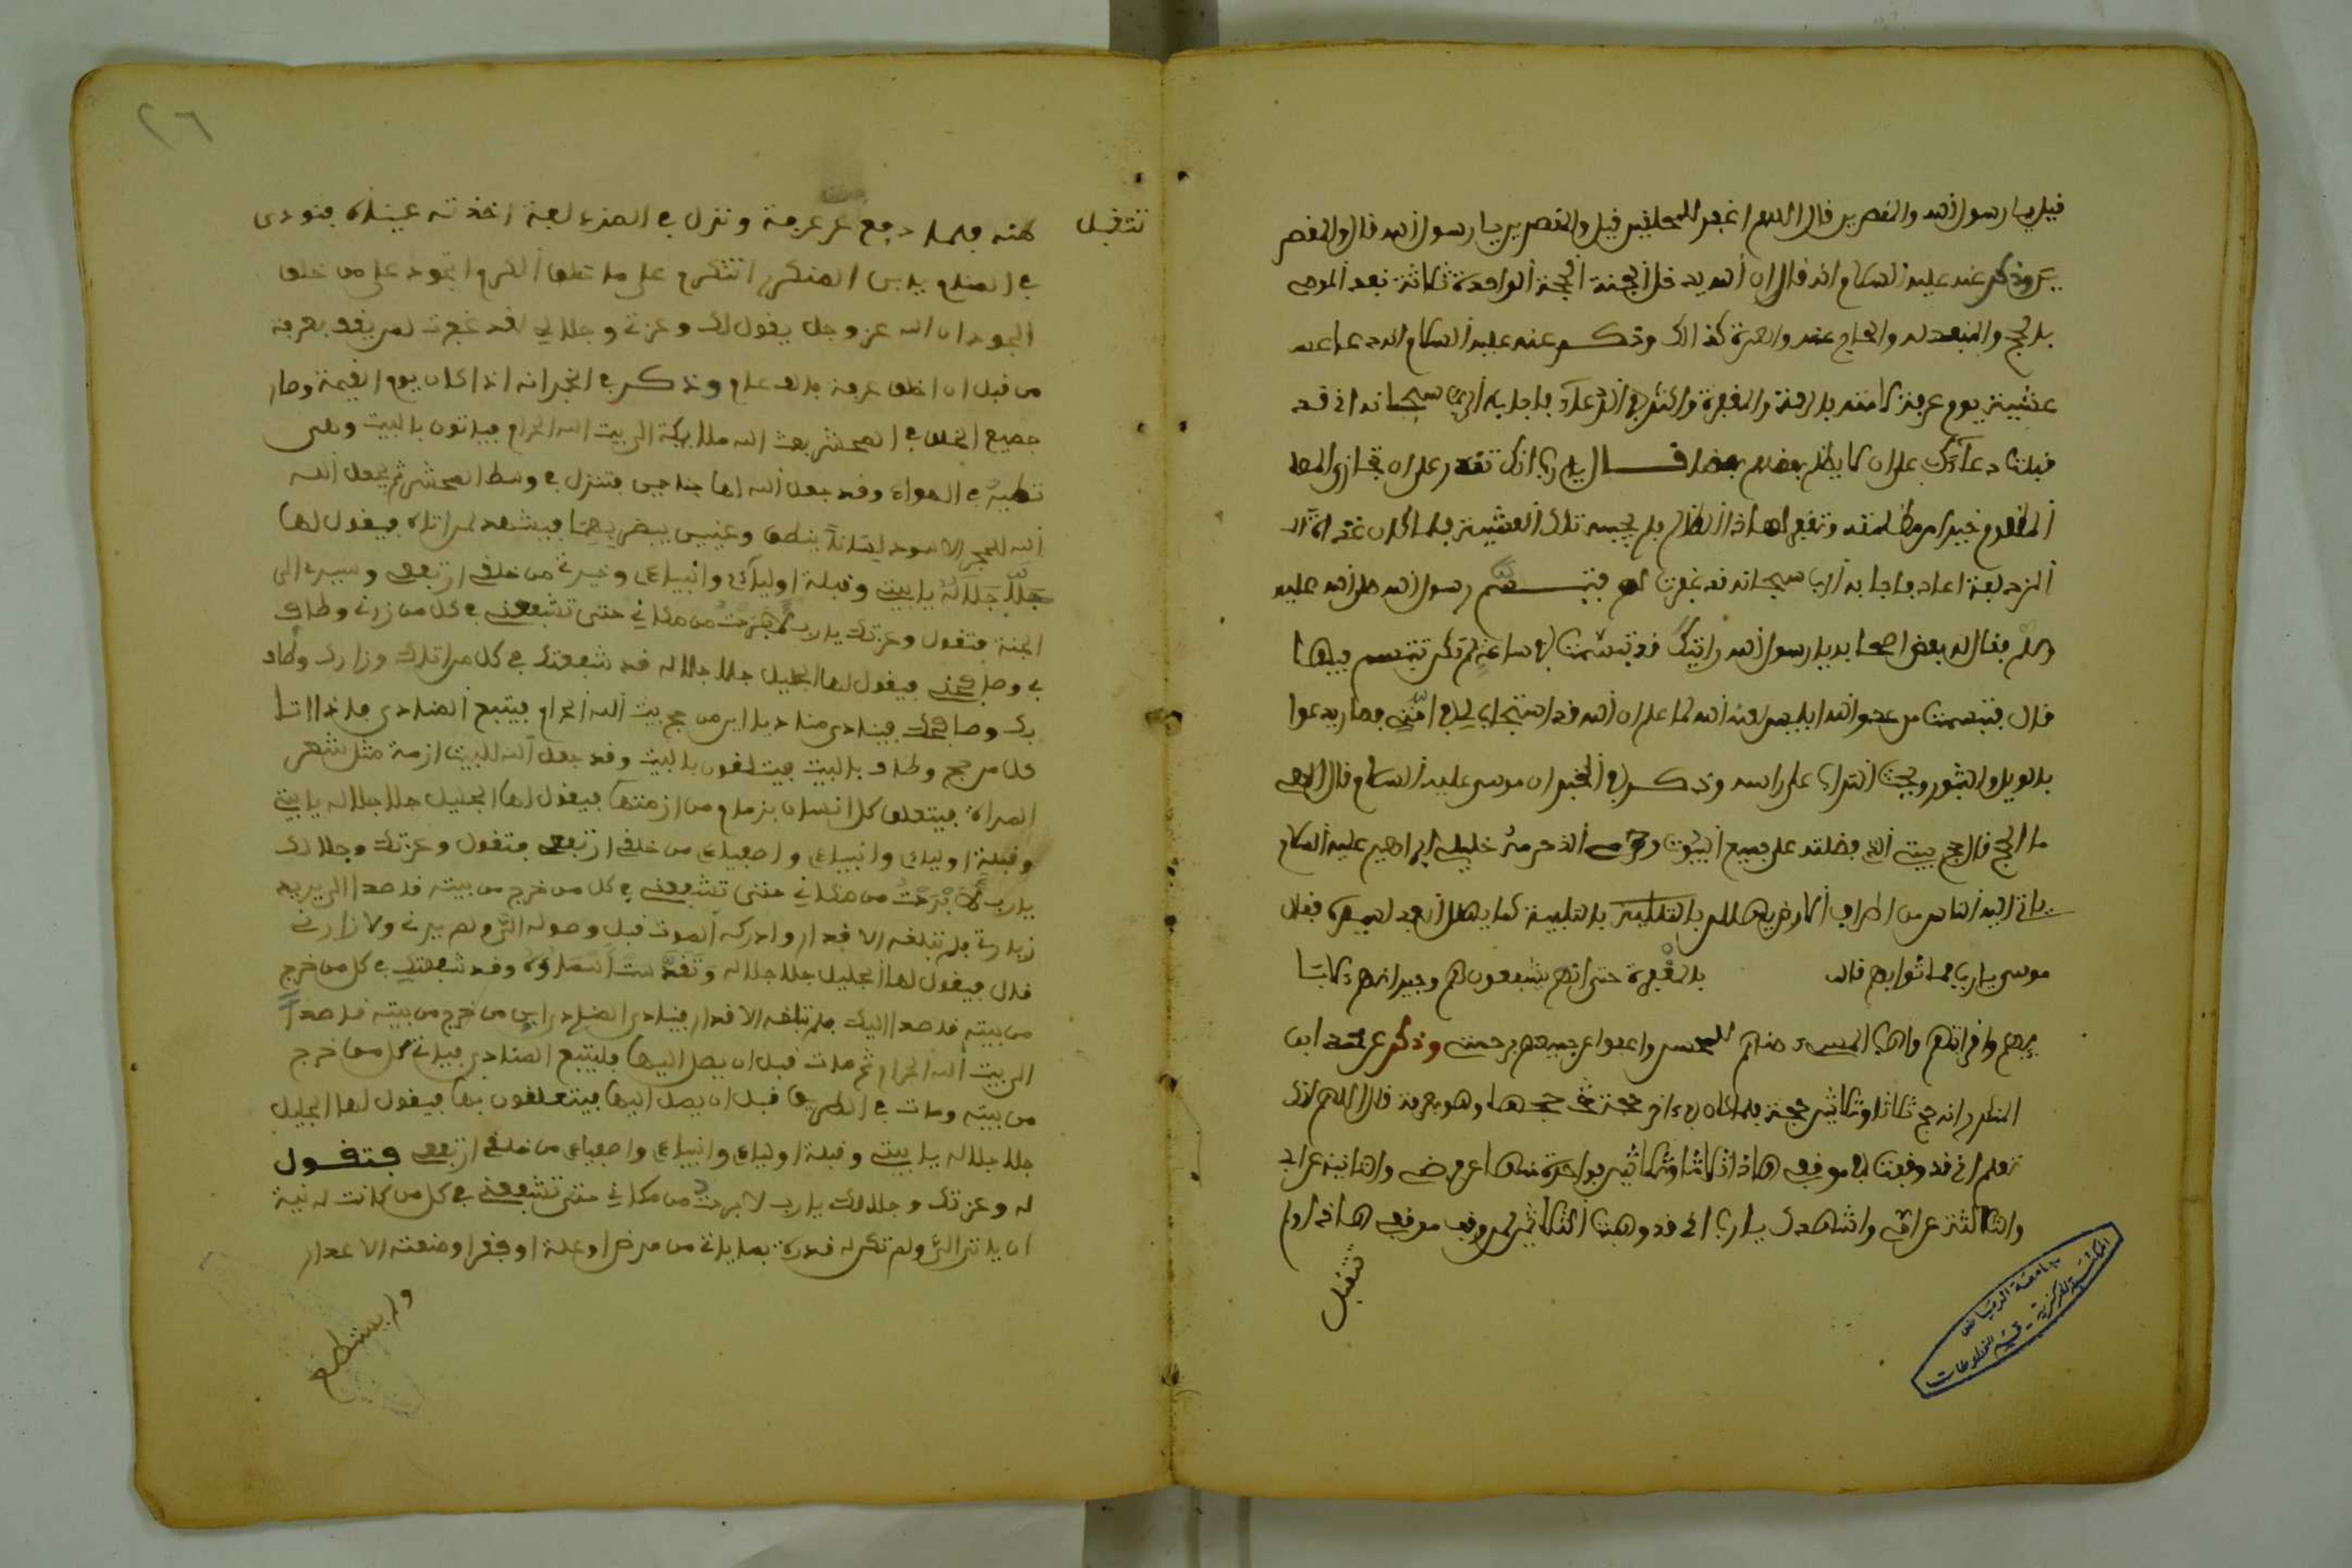 قيل يا رسول الله والمقصرين قال اللهم اغفر للمحلقين قيل والمقصرين يا رسول الله قال والمقصر
ين وذكر عنه عليه السلام انه قال ان الله يدخل الجنة الحجة الواحدة ثلاثة نفر الموصى
بالحج والمنفذ له والحاج عنه والعمرة كذالك وذكر عنه عليه السلام انه دعا
عشية يوم عرفة لامته بالرحمة والمغفرة واكثر في الدعاء فاجابه الرب سبحانه اني قد
قبلت دعاءك على ان لا يظلم بعضهم بعضا قال يا رب انك تقدر على ان تجازي المظلو
المظلوم خيرا من مظلمته وتغفر لهاذا الظالم فلم يجبه تلك العشية فلما كان غداة
المزدلفة اعاد فاجابه الرب سبحانه قد غفرت لهم فتبسم رسول الله صلى الله عليه
وسلم فقال له بعض اصحابه يا رسول الله رايتك قد تبسمت في ساعة لم تكن تتبسم فيها
قال تبسمت من عدو الله ابليس لعنه الله لما علم ان الله قد استجاب لي في امتي فصار يدعوا
بالويل والثبور ويحث التراب على راسه وذكر في الخبر ان موسى عليه السلام قال الاهي
ما الحج قال حج بيتي الذي فضلته على جميع البيوت وحرمي الذي حرمه خليلي ابراهيم عليه السلام
ياتي اليه الناس من اطراف الارض يهللون بالتلبية كما يهلل العبد لسيده فقال
موسى يا رب فما ثوابهم قال بالمغفرة حتى انهم يشفعون لهم وجيرانهم
واقرابهم واهب المسيء منهم للمحسن واعفوا عن جميعهم برحمتي وذكر عن محمد ابن
المنكدر انه حج ثلاثا وثلاثين حجة فلما كان في ءاخر حجة حجها وهو بعرفة قال اللهم انك
تعلم اني قد وقفت في موقفي هاذا ثلاثا وثلاثين فواحدة منها عن فرضي والثانية عن ابي
والثالثة عن امي واشهدك يا رب اني قد وهبت الثلاثين لمن وقف موقفي هاذا ولم
تتقبل
٢٦
تتقبل منه فلما دفع من عرفة ونزل في المزدلفة اخذته عيناه فنودي
في المنام يابن المنكدر اتتكرم على من خلق الكرم اتجود على من خلق
الجود ان الله عز وجل يقول لك وعزتي وجلالي لقد غفرت لمن يقف بعرفة
من قبل ان اخلق عرفة بالف عام وذكر في الخبر انه اذا كان يوم القيمة وصار
جميع الخلق في المحشر بعث الله ملايكة الى بيت الله الحرام فياتون بالبيت وهي
تطير في الهواء وقد جعل الله لها جناحين فتنزل في وسط المحشر ثم يجعل الله
الله للحجر الاسود لسانا ينطق وعينين يبصر بهما فيشهد لمن اتاه فيقول لها
جل جلاله يا بيتي وقبلة اوليائي وانبيائي وخيرتي من خلقي ارتفعي وسيري الى
الجنة فتقول وعزتك يا رب لا برحت من مكاني حتى تشفعني في كل من زارني وطاف
بي وصافحني فيقول لها الجليل جل جلاله قد شفعتك في كل من اتاك وزارك وطاف
بك وصافحك فينادي مناد يا اين من حج بيت الله الحرام فيتبع المنادي فاذا اتا
كل من حج وطاف بالبيت فيتعلقون بالبيت وقد جعل الله للبيت ازمة مثل شعر
المراة فيتعلق كل انسان بزمام من ازمتها فيقول لها الجليل جل جلاله يا بيتي
وقبلة اوليائي وانبيائي واصفيائي من خلقي ارتفعي فتقول وعزتك وجلالك
يا رب لا برحت من مكاني حتى تشفعني في كل من خرج من بيته قاصدا الي يريد
زيارتي فلم تبلغه الاقدار وادركه الموت قبل وصوله الي ولم يرني ولا زارني
قال فيقول لها الجليل جل جلاله وتقدست اسماؤه وقد شفعتك في كل من خرج
من بيته قاصدا اليك فلم تبلغه الاقدار فينادي المنادي اين من خرج من بيته قاصدا
الى بيت الله الحرام ثم مات قبل ان يصل اليها فليتبع المنادي فياتي كل من خرج
من بيته ومات في الطريق قبل ان يصل اليها فيتعلقون بها فيقول لها الجليل
جل جلاله يا بيتي وقبلة اوليائي وانبيائي واصفيائي من خلقي ارتفعي فتقول
له وعزتك وجلالك يا رب لا برحت من مكاني حتى تشفعني في كل من كانت له نية
ان ياتي الي ولم تكن له قدرة بما ياتي من مرض او علة او فقر او منعته الاعدار
ولم يستطع
جامعة الرياض
المكتبة المركزية - قسم المخطوطات